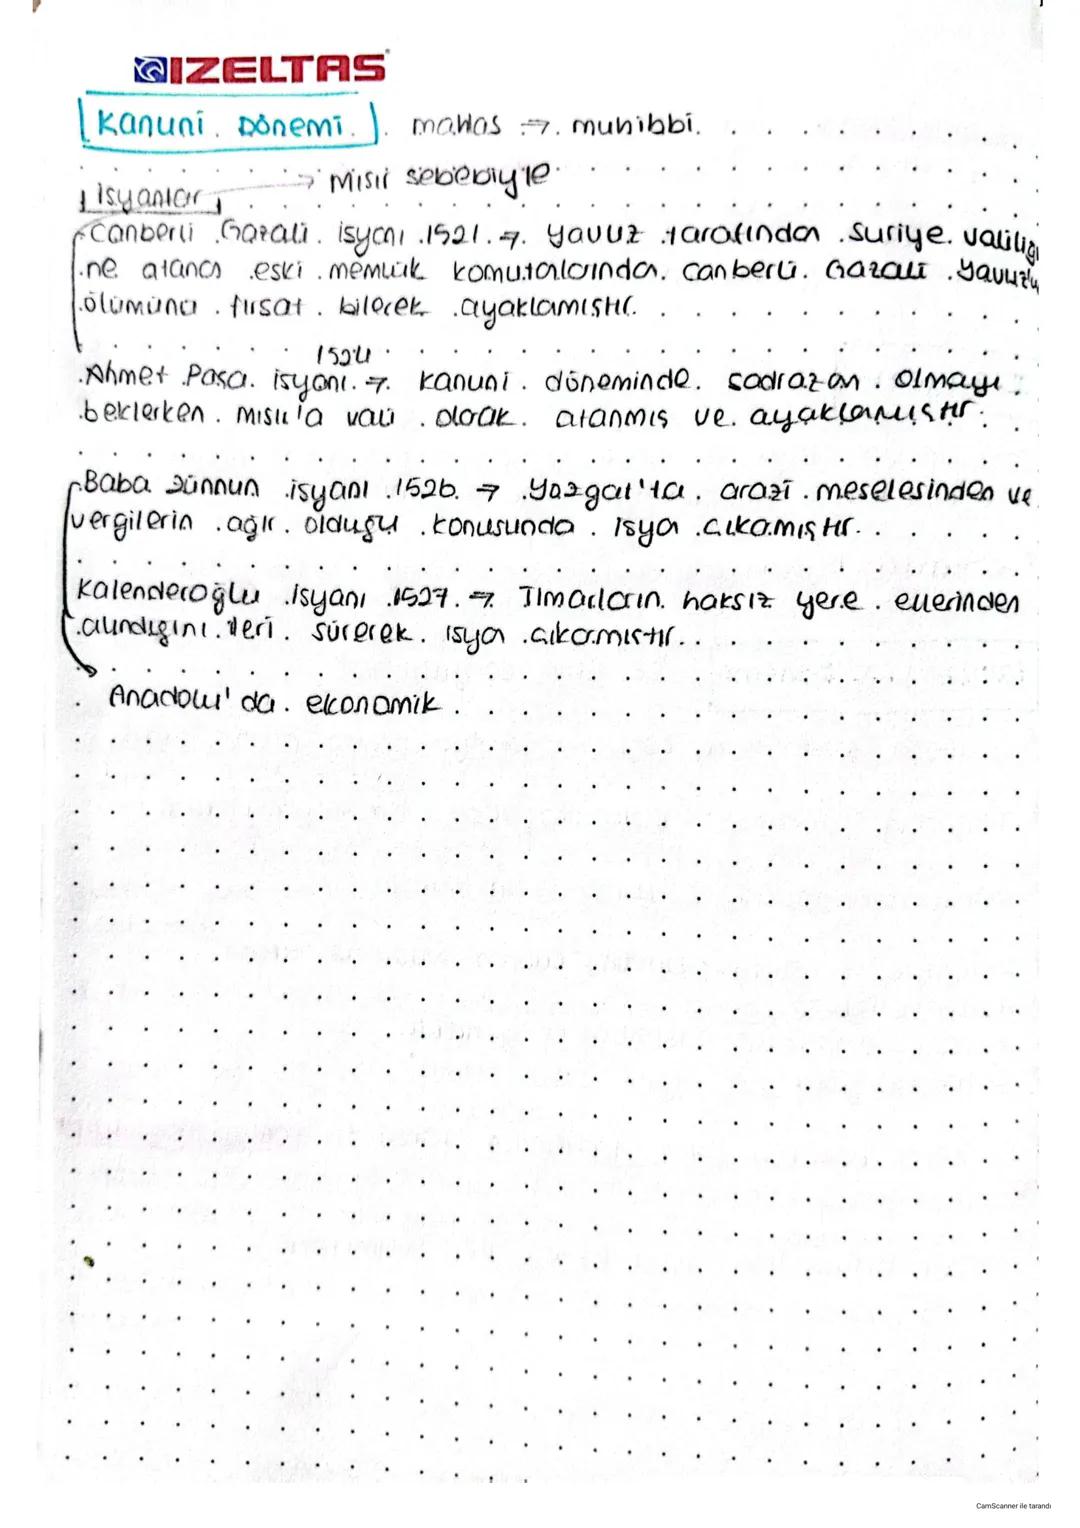 İZELTAŞ
Kanuni Dönemi mahlas → muhibbi.
İsyanlar → Mısır sebebiyle
Canberdi Gazali isyanı 1521 → Yavuz tarafından Suriye valiliği
ne atanan eski memlük komutanlarından canberdi Gazali Yavuz'un
ölümünü fırsat bilerek ayaklanmıştır.
1524
Ahmet Paşa isyanı → kanuni döneminde sadrazam olmayı
beklerken mısır'a vali olarak atanmış ve ayaklanmıştır.
Baba Zünnun isyanı 1526 → Yozgat'ta arazi meselesinden ve
vergilerin ağır olduğu konusunda isyan çıkarmıştır.
Kalenderoğlu isyanı 1527 → Tımarların haksız yere ellerinden
alındığını ileri sürerek isyan çıkarmıştır.
Anadolu'da ekonomik
CamScanner ile tarandı